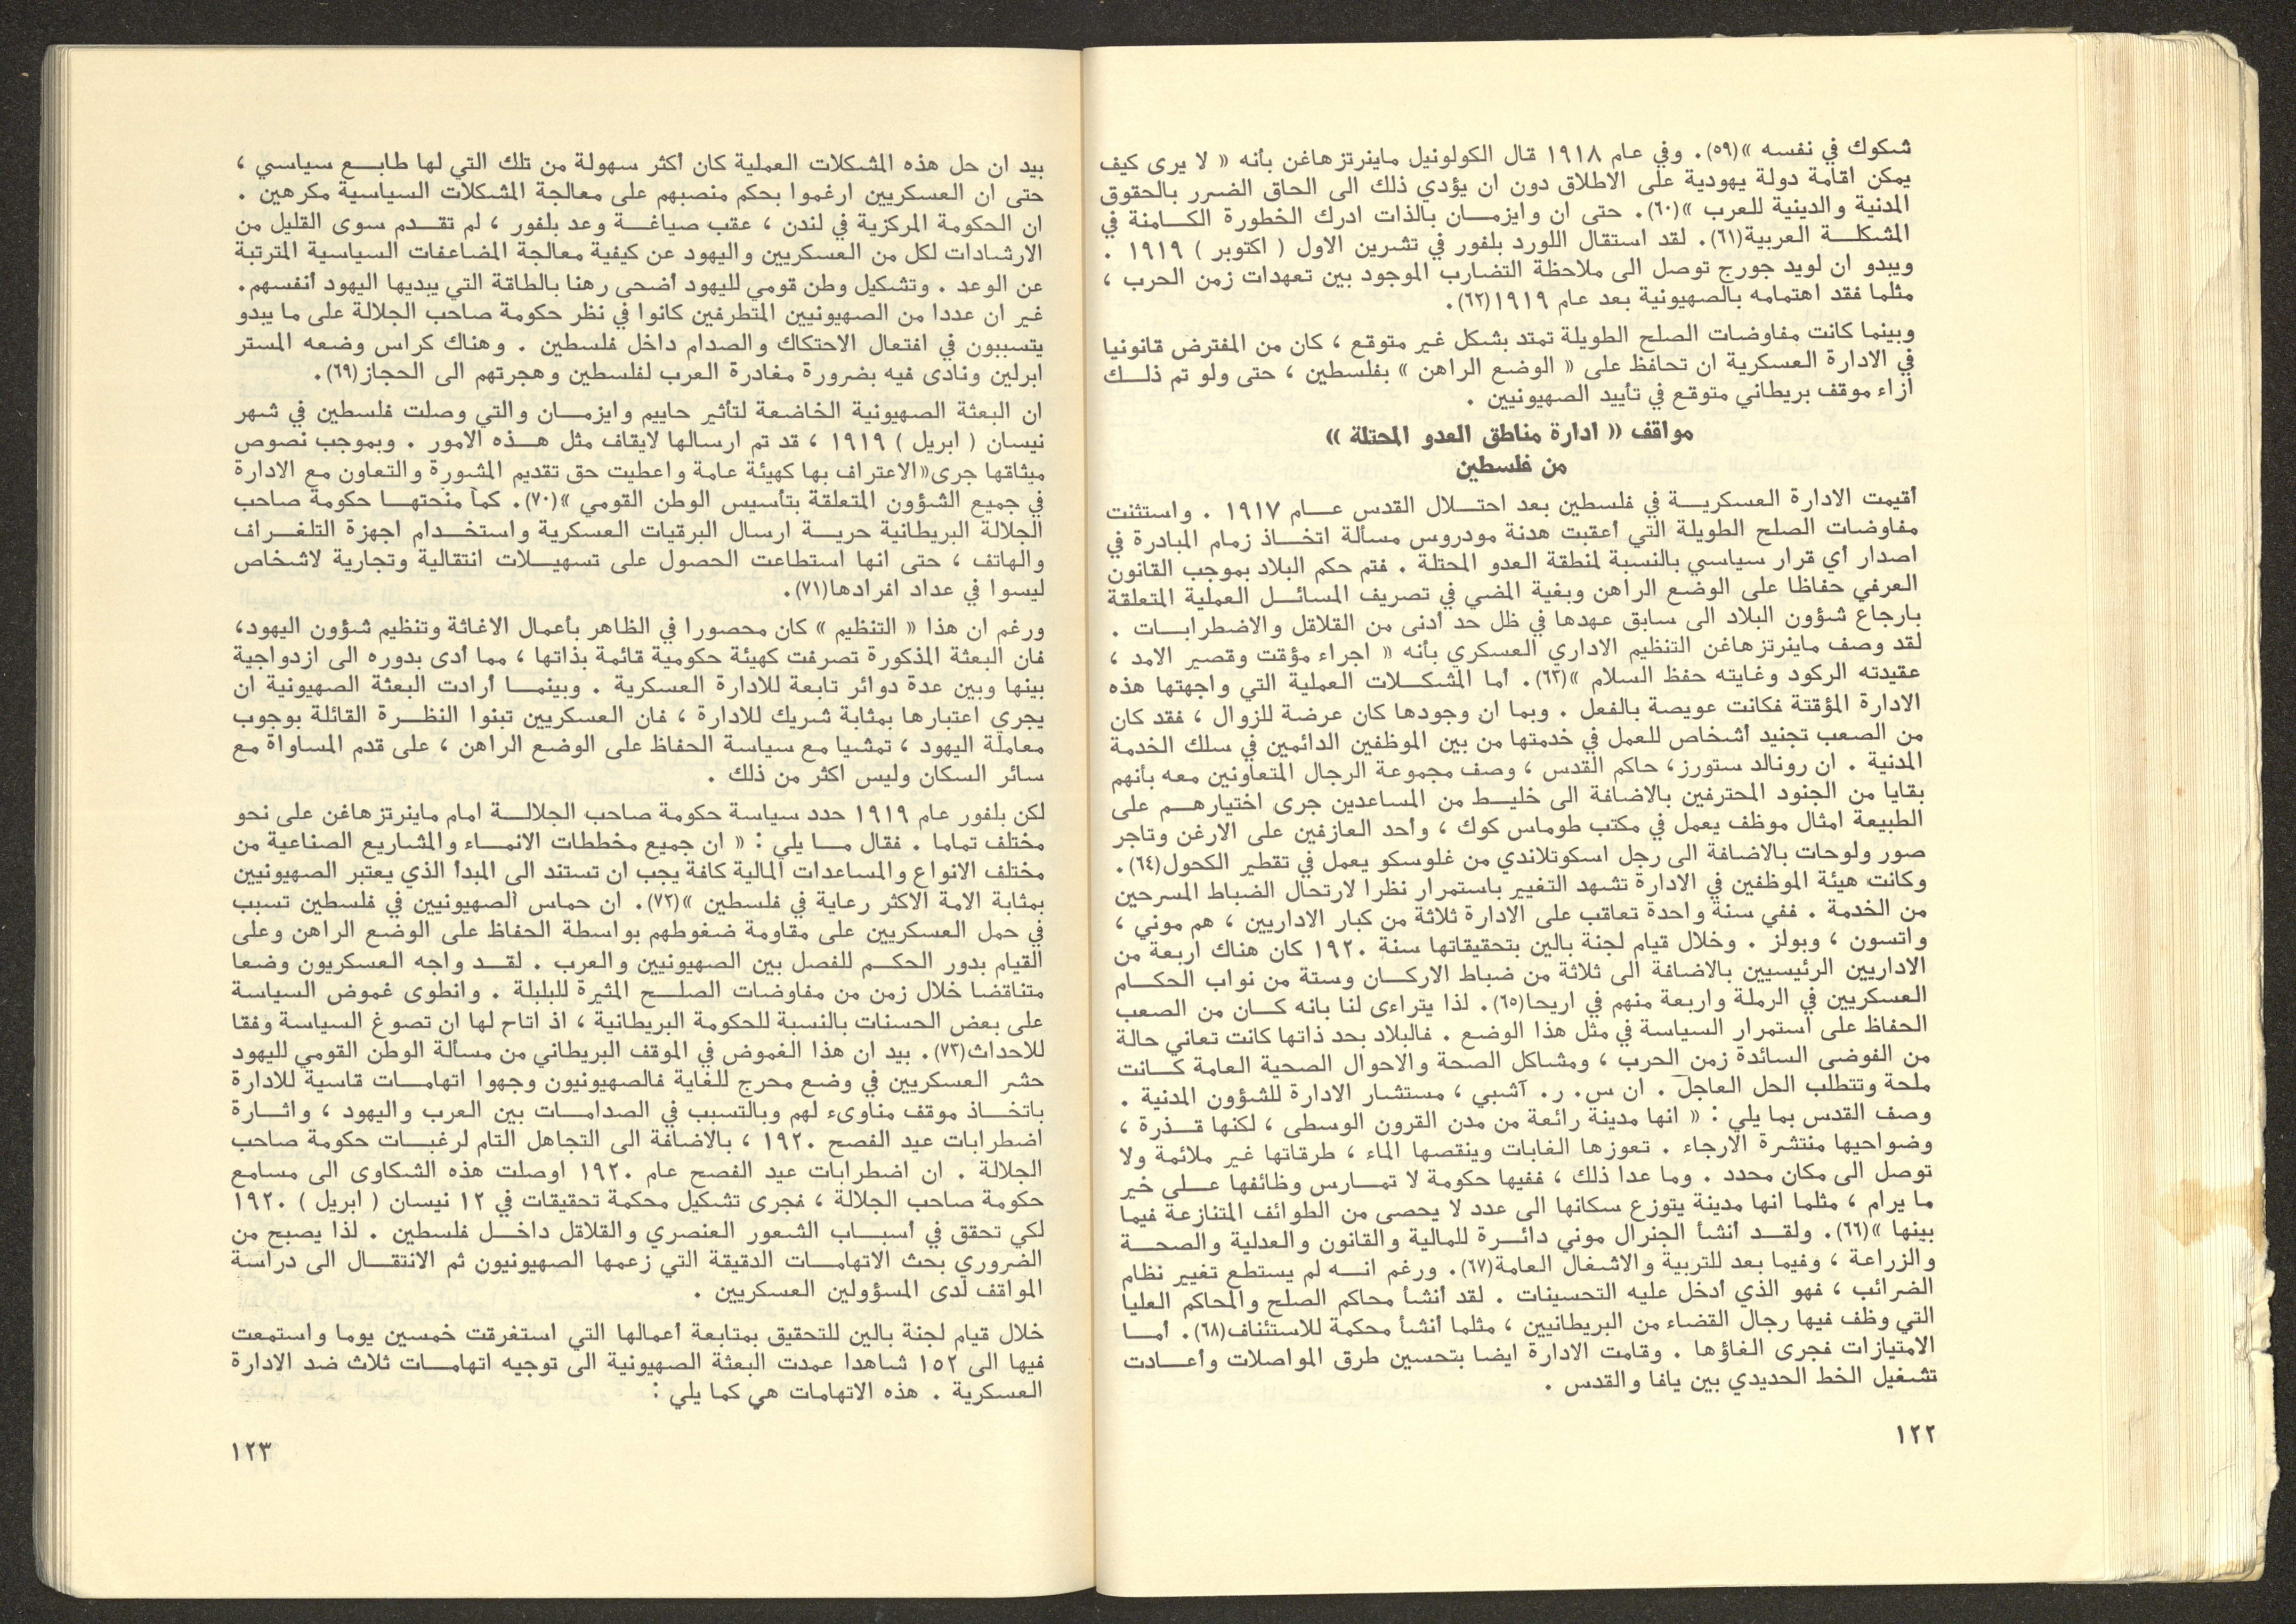 شكوك في نفسه »(٥٩). وفي عام ١٩١٨ قال الكولونيل ماينرتزهاغن بأنه « لا يرى كيف
يمكن اقامة دولة يهودية على الاطلاق دون ان يؤدي ذلك الى الحاق الضرر بالحقوق
المدنية والدينية للعرب »(٦٠). حتى ان وايزمــان بالذات ادرك الخطورة الكــامنة في
المشكلــة العربية(٦١). لقد استقال اللورد بلفور في تشرين الاول ( اكتوبر ) ١٩١٩ .
ويبدو ان لويد جورج توصل الى ملاحظة التضارب الموجود بين تعهدات زمن الحرب ،
مثلما فقد اهتمامه بالصهيونية بعد عام ١٩١٩(٦٢).
وبينما كانت مفاوضات الصلح الطويلة تمتد بشكل غير متوقع ، كان من المفترض قانونيا
في الادارة العسكرية ان تحافظ على « الوضع الراهن » بفلسطين ، حتى ولو تم ذلــك
ازاء موقف بريطاني متوقع في تأييد الصهيونيين .
مواقف « ادارة مناطق العدو المحتلة »
من فلسطين
أقيمت الادارة العسكريــة في فلسطين بعد احتــلال القدس عــام ١٩١٧ . واستثنت
مفاوضات الصلح الطويلة التي أعقبت هدنة مودروس مسألة اتخــاذ زمام المبادرة في
اصدار أي قرار سياسي بالنسبة لمنطقة العدو المحتلة . فتم حكم البلاد بموجب القانون
العرفي حفاظا على الوضع الراهن وبغية المضي في تصريف المسائــل العملية المتعلقة
بارجاع شؤون البلاد الى سابق عهدها في ظل حد أدنى من القلاقل والاضطرابــات .
لقد وصف ماينرتزهاغن التنظيم الاداري العسكري بأنه « اجراء مؤقت وقصير الامد ،
عقيدته الركود وغايته حفظ السلام »(٦٣). أما المشكــلات العملية التي واجهتها هذه
الادارة المؤقتة فكانت عويصة بالفعل . وبما ان وجودها كان عرضة للزوال ، فقد كان
من الصعب تجنيد أشخاص للعمل في خدمتها من بين الموظفين الدائمين في سلك الخدمة
المدنية . ان رونالد ستورز، حاكم القدس ، وصف مجموعة الرجال المتعاونين معه بأنهم
بقايا من الجنود المحترفين بالاضافة الى خليــط من المساعدين جرى اختيارهــم على
الطبيعة امثال موظف يعمل في مكتب طوماس كوك ، وأحد العازفين على الارغن وتاجر
صور ولوحات بالاضافة الى رجل اسكوتلاندي من غلوسكو يعمل في تقطير الكحول(٦٤).
وكانت هيئة الموظفين في الادارة تشهد التغيير باستمرار نظرا لارتحال الضباط المسرحين
من الخدمة . ففي سنة واحدة تعاقب على الادارة ثلاثة من كبار الاداريين ، هم موني ،
واتسون ، وبولز . وخلال قيام لجنة بالين بتحقيقاتها سنة ١٩٢٠ كان هناك اربعة من
الاداريين الرئيسيين بالاضافة الى ثلاثة من ضباط الاركــان وستة من نواب الحكــام
العسكريين في الرملة واربعة منهم في اريحا(٦٥). لذا يتراءى لنا بانه كــان من الصعب
الحفاظ على استمرار السياسة في مثل هذا الوضع . فالبلاد بحد ذاتها كانت تعاني حالة
من الفوضى السائدة زمن الحرب ، ومشاكل الصحة والاحوال الصحية العامة كــانت
ملحة وتتطلب الحل العاجل . ان س. ر. آشبي ، مستشار الادارة للشؤون المدنية .
وصف القدس بما يلي : « انها مدينة رائعة من مدن القرون الوسطى ، لكنها قــذرة ،
وضواحيها منتشرة الارجاء . تعوزها الغابات وينقصها الماء ، طرقاتها غير ملائمة ولا
توصل الى مكان محدد . وما عدا ذلك ، ففيها حكومة لا تمــارس وظائفها عــلى خير
ما يرام ، مثلما انها مدينة يتوزع سكانها الى عدد لا يحصى من الطوائف المتنازعة فيما
بينها »(٦٦). ولقــد أنشأ الجنرال موني دائــرة للمالية والقانون والعدلية والصحــة
والزراعة ، وفيما بعد للتربية والاشغال العامة(٦٧). ورغم انــه لم يستطع تغيير نظام
الضرائب ، فهو الذي أدخل عليه التحسينات . لقد أنشأ محاكم الصلح والمحاكم العليا
التي وظف فيها رجال القضاء من البريطانيين ، مثلما أنشأ محكمة للاستئناف(٦٨). أمــا
الامتيازات فجرى الغاؤها . وقامت الادارة ايضا بتحسين طرق المواصلات وأعــادت
تشغيل الخط الحديدي بين يافا والقدس .
١٢٢
بيد ان حل هذه المشكلات العملية كان أكثر سهولة من تلك التي لها طابــع سياسي ،
حتى ان العسكريين ارغموا بحكم منصبهم على معالجة المشكلات السياسية مكرهين .
ان الحكومة المركزية في لندن ، عقب صياغــة وعد بلفور ، لم تقــدم سوى القليل من
الارشادات لكل من العسكريين واليهود عن كيفية معالجة المضاعفات السياسية المترتبة
عن الوعد . وتشكيل وطن قومي لليهود أضحى رهنا بالطاقة التي يبديها اليهود أنفسهم.
غير ان عددا من الصهيونيين المتطرفين كانوا في نظر حكومة صاحب الجلالة على ما يبدو
يتسببون في افتعال الاحتكاك والصدام داخل فلسطين . وهناك كراس وضعه المستر
ابرلين ونادى فيه بضرورة مغادرة العرب لفلسطين وهجرتهم الى الحجاز(٦٩).
ان البعثة الصهيونية الخاضعة لتأثير حاييم وايزمــان والتي وصلت فلسطين في شهر
نيسان ( ابريل ) ١٩١٩ ، قد تم ارسالها لايقاف مثل هــذه الامور . وبموجب نصوص
ميثاقها جرى«الاعتراف بها كهيئة عامة واعطيت حق تقديم المشورة والتعاون مع الادارة
في جميع الشؤون المتعلقة بتأسيس الوطن القومي »(٧٠). كما منحتهــا حكومة صاحب
الجلالة البريطانية حريــة ارسال البرقيات العسكرية واستخــدام اجهزة التلغــراف
والهاتف ، حتى انها استطاعت الحصول على تسهيــلات انتقالية وتجارية لاشخاص
ليسوا في عداد افرادها(٧١).
ورغم ان هذا « التنظيم » كان محصورا في الظاهر بأعمال الاغاثة وتنظيم شؤون اليهود،
فان البعثة المذكورة تصرفت كهيئة حكومية قائمة بذاتها ، مما أدى بدوره الى ازدواجية
بينها وبين عدة دوائر تابعة للادارة العسكرية . وبينمــا أرادت البعثة الصهيونية ان
يجري اعتبارها بمثابة شريك للادارة ، فان العسكريين تبنوا النظــرة القائلة بوجوب
معاملة اليهود ، تمشيا مع سياسة الحفاظ على الوضع الراهن ، على قدم المساواة مع
سائر السكان وليس اكثر من ذلك .
لكن بلفور عام ١٩١٩ حدد سياسة حكومة صاحب الجلالــة امام ماينرتزهاغن على نحو
مختلف تماما . فقال مــا يلي : « ان جميع مخططات الانمــاء والمشاريع الصناعية من
مختلف الانواع والمساعدات المالية كافة يجب ان تستند الى المبدأ الذي يعتبر الصهيونيين
بمثابة الامة الاكثر رعاية في فلسطين »(٧٢). ان حماس الصهيونيين في فلسطين تسبب
في حمل العسكريين على مقاومة ضغوطهم بواسطة الحفاظ على الوضع الراهن وعلى
القيام بدور الحكــم للفصل بين الصهيونيين والعرب . لقــد واجه العسكريون وضعا
متناقضا خلال زمن من مفاوضات الصلــح المثيرة للبلبلة . وانطوى غموض السياسة
على بعض الحسنات بالنسبة للحكومة البريطانية ، اذ اتاح لها ان تصوغ السياسة وفقا
للاحداث(٧٣). بيد ان هذا الغموض في الموقف البريطاني من مسألة الوطن القومي لليهود
حشر العسكريين في وضع محرج للغاية فالصهيونيون وجهوا اتهامــات قاسية للادارة
باتخــاذ موقف مناوىء لهم وبالتسبب في الصدامــات بين العرب واليهود ، واثــارة
اضطرابات عيد الفصح ١٩٢٠ ، بالاضافة الى التجاهل التام لرغبــات حكومة صاحب
الجلالة . ان اضطرابات عيد الفصح عام ١٩٢٠ اوصلت هذه الشكاوى الى مسامع
حكومة صاحب الجلالة ، فجرى تشكيل محكمة تحقيقات في ١٢ نيسان ( ابريل ) ١٩٢٠
لكي تحقق في أسبــاب الشعور العنصري والقلاقل داخــل فلسطين . لذا يصبح من
الضروري بحث الاتهامــات الدقيقة التي زعمها الصهيونيون ثم الانتقــال الى دراسة
المواقف لدى المسؤولين العسكريين .
خلال قيام لجنة بالين للتحقيق بمتابعة أعمالها التي استغرقت خمسين يوما واستمعت
فيها الى ١٥٢ شاهدا عمدت البعثة الصهيونية الى توجيه اتهامــات ثلاث ضد الادارة
العسكرية . هذه الاتهامات هي كما يلي :
١٢٣